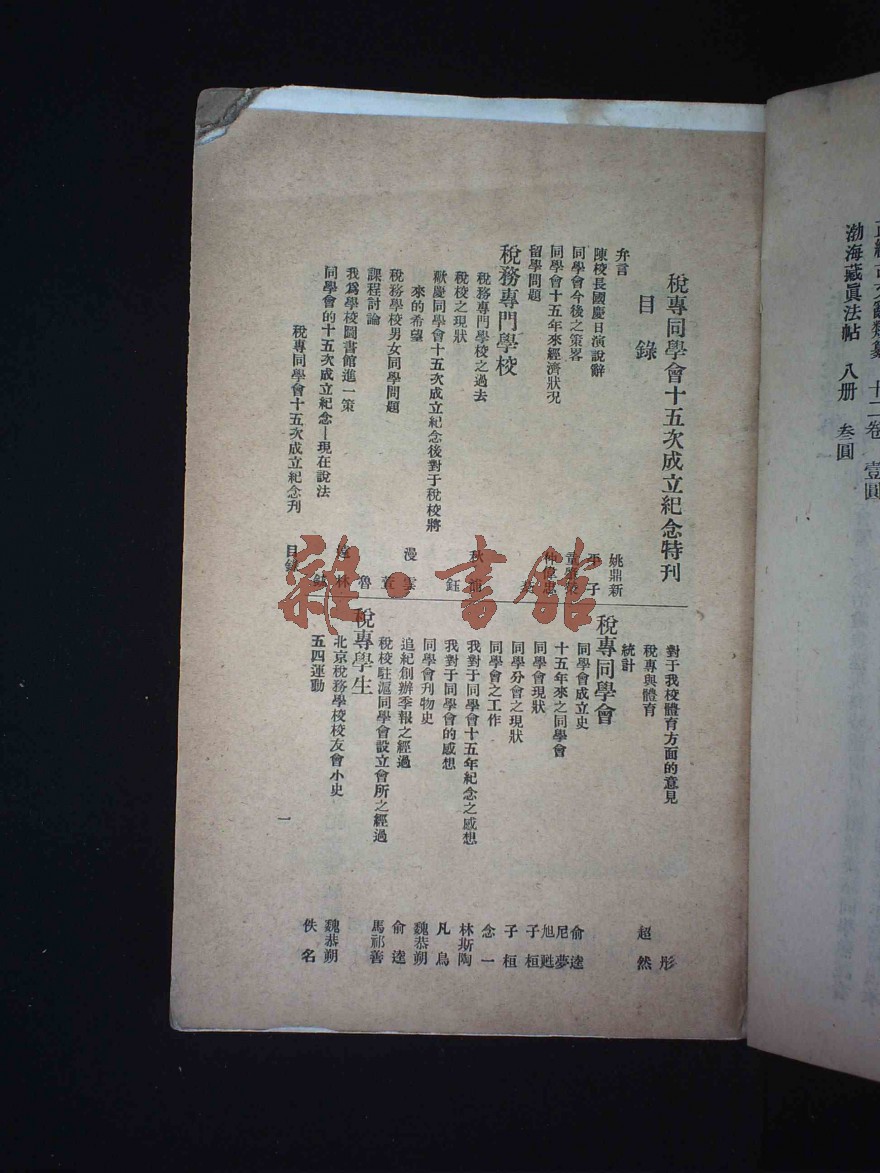 稅專同學會十五次成立紀念特刊
目錄
弁言
陳校長國慶日演說辭
同學會今後之策畧
同學會十五年來經濟狀况
留學問題
稅務專門學校
稅務專門學校之過去
稅校之現狀
歡慶同學會十五次成立紀念後對于稅校將
來的希望
稅務學校男女同學問題
課程討論
我爲學校圖書館進一策
同學會的十五次成立紀念—現在說法
姚鼎新
子
仲偉忠
秋
鈺
漫雲
魯
林
對于我校體育方面的意見
稅專與體育
統計
稅專同學會
同學會成立史
十五年來之同學會
同學會現狀
同學分會之現狀
同學會之工作
我對于同學會十五年紀念之感想
我對于同學會的感想
同學會刊物史
追紀創辦季報之經過
稅校駐滬同學會設立會所之經過
稅專學生
北京稅務學校校友會小史
五四運動
彤
超然
俞逵
尼夢
旭甦
子桓
子桓
念一
林斯陶
凡鳥
魏恭朔
俞逵
馬祁善
魏恭朔
佚名
稅專同學會十五次成立紀念刊 目錄
一
十二卷 壹圓
渤海藏眞法帖 八册 叁圓
雜·書館